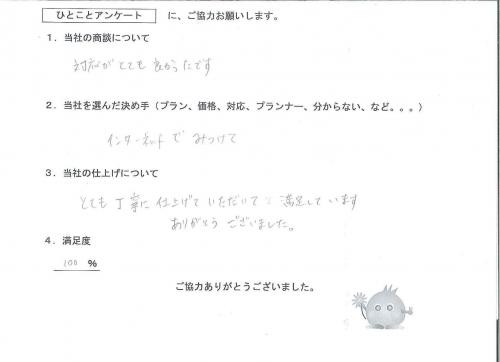 ひとことアンケート に、ご協力お願いします。
1．当社の商談について
対応がとても良かったです
2．当社を選んだ決め手（プラン、価格、対応、プランナー、分からない、など。。。）
インターネットで みつけて
3．当社の仕上げについて
とても丁寧に仕上げていただいて 満足しています
ありがとうございました。
4．満足度
100 %
ご協力ありがとうございました。